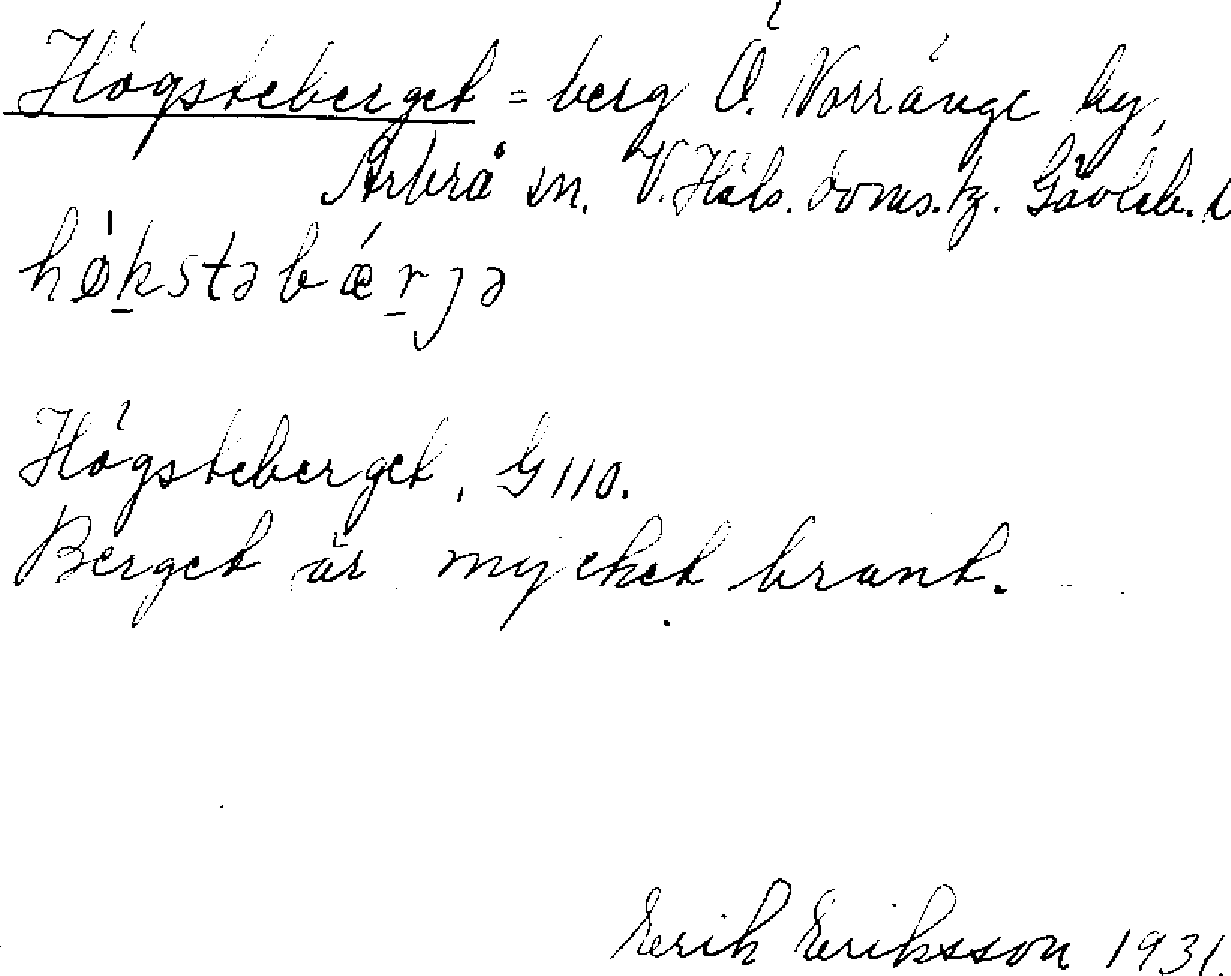 Högsteberget = berg Ö. Norränge by,
Arbrå sn. V. Häls. doms.tg. Gävleb. l
hø̀kstəbǽrjə
Högsteberget, G 110.
Berget är mycket brant.
Erik Eriksson 1931.